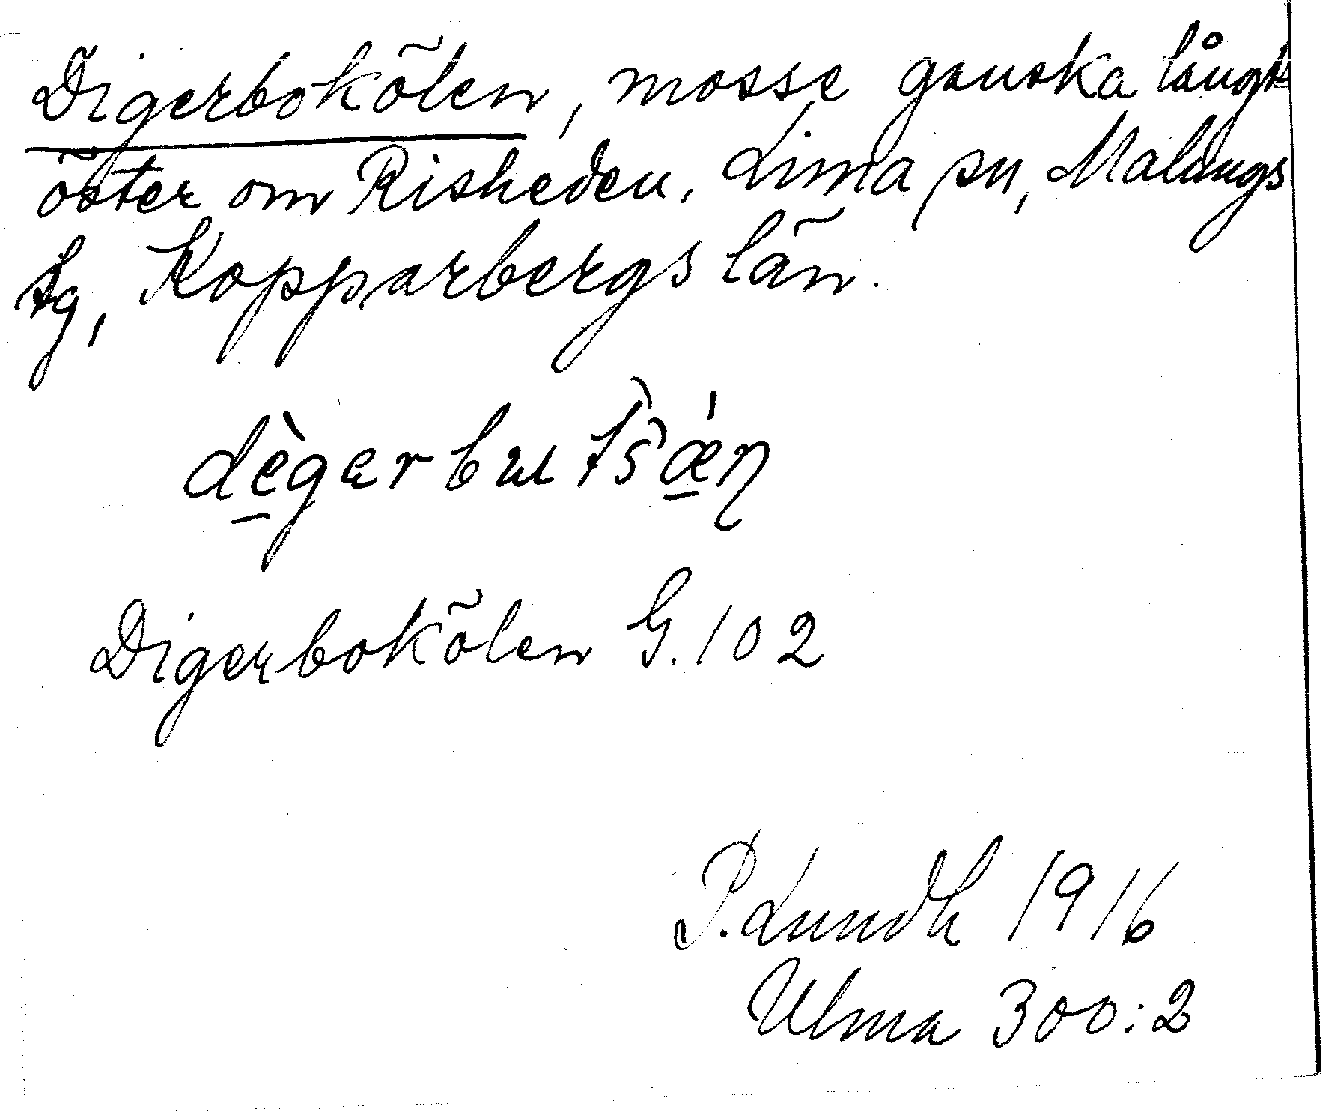 Digerbokölen, mosse ganska långt
öster om Risheden, Lima sn, Malungs
tg, Kopparbergs län.
dègərbut̂s̀ǽ̱ŋ
Digerbokölen G.102
P. Lundh 1916
Ulma 300:2